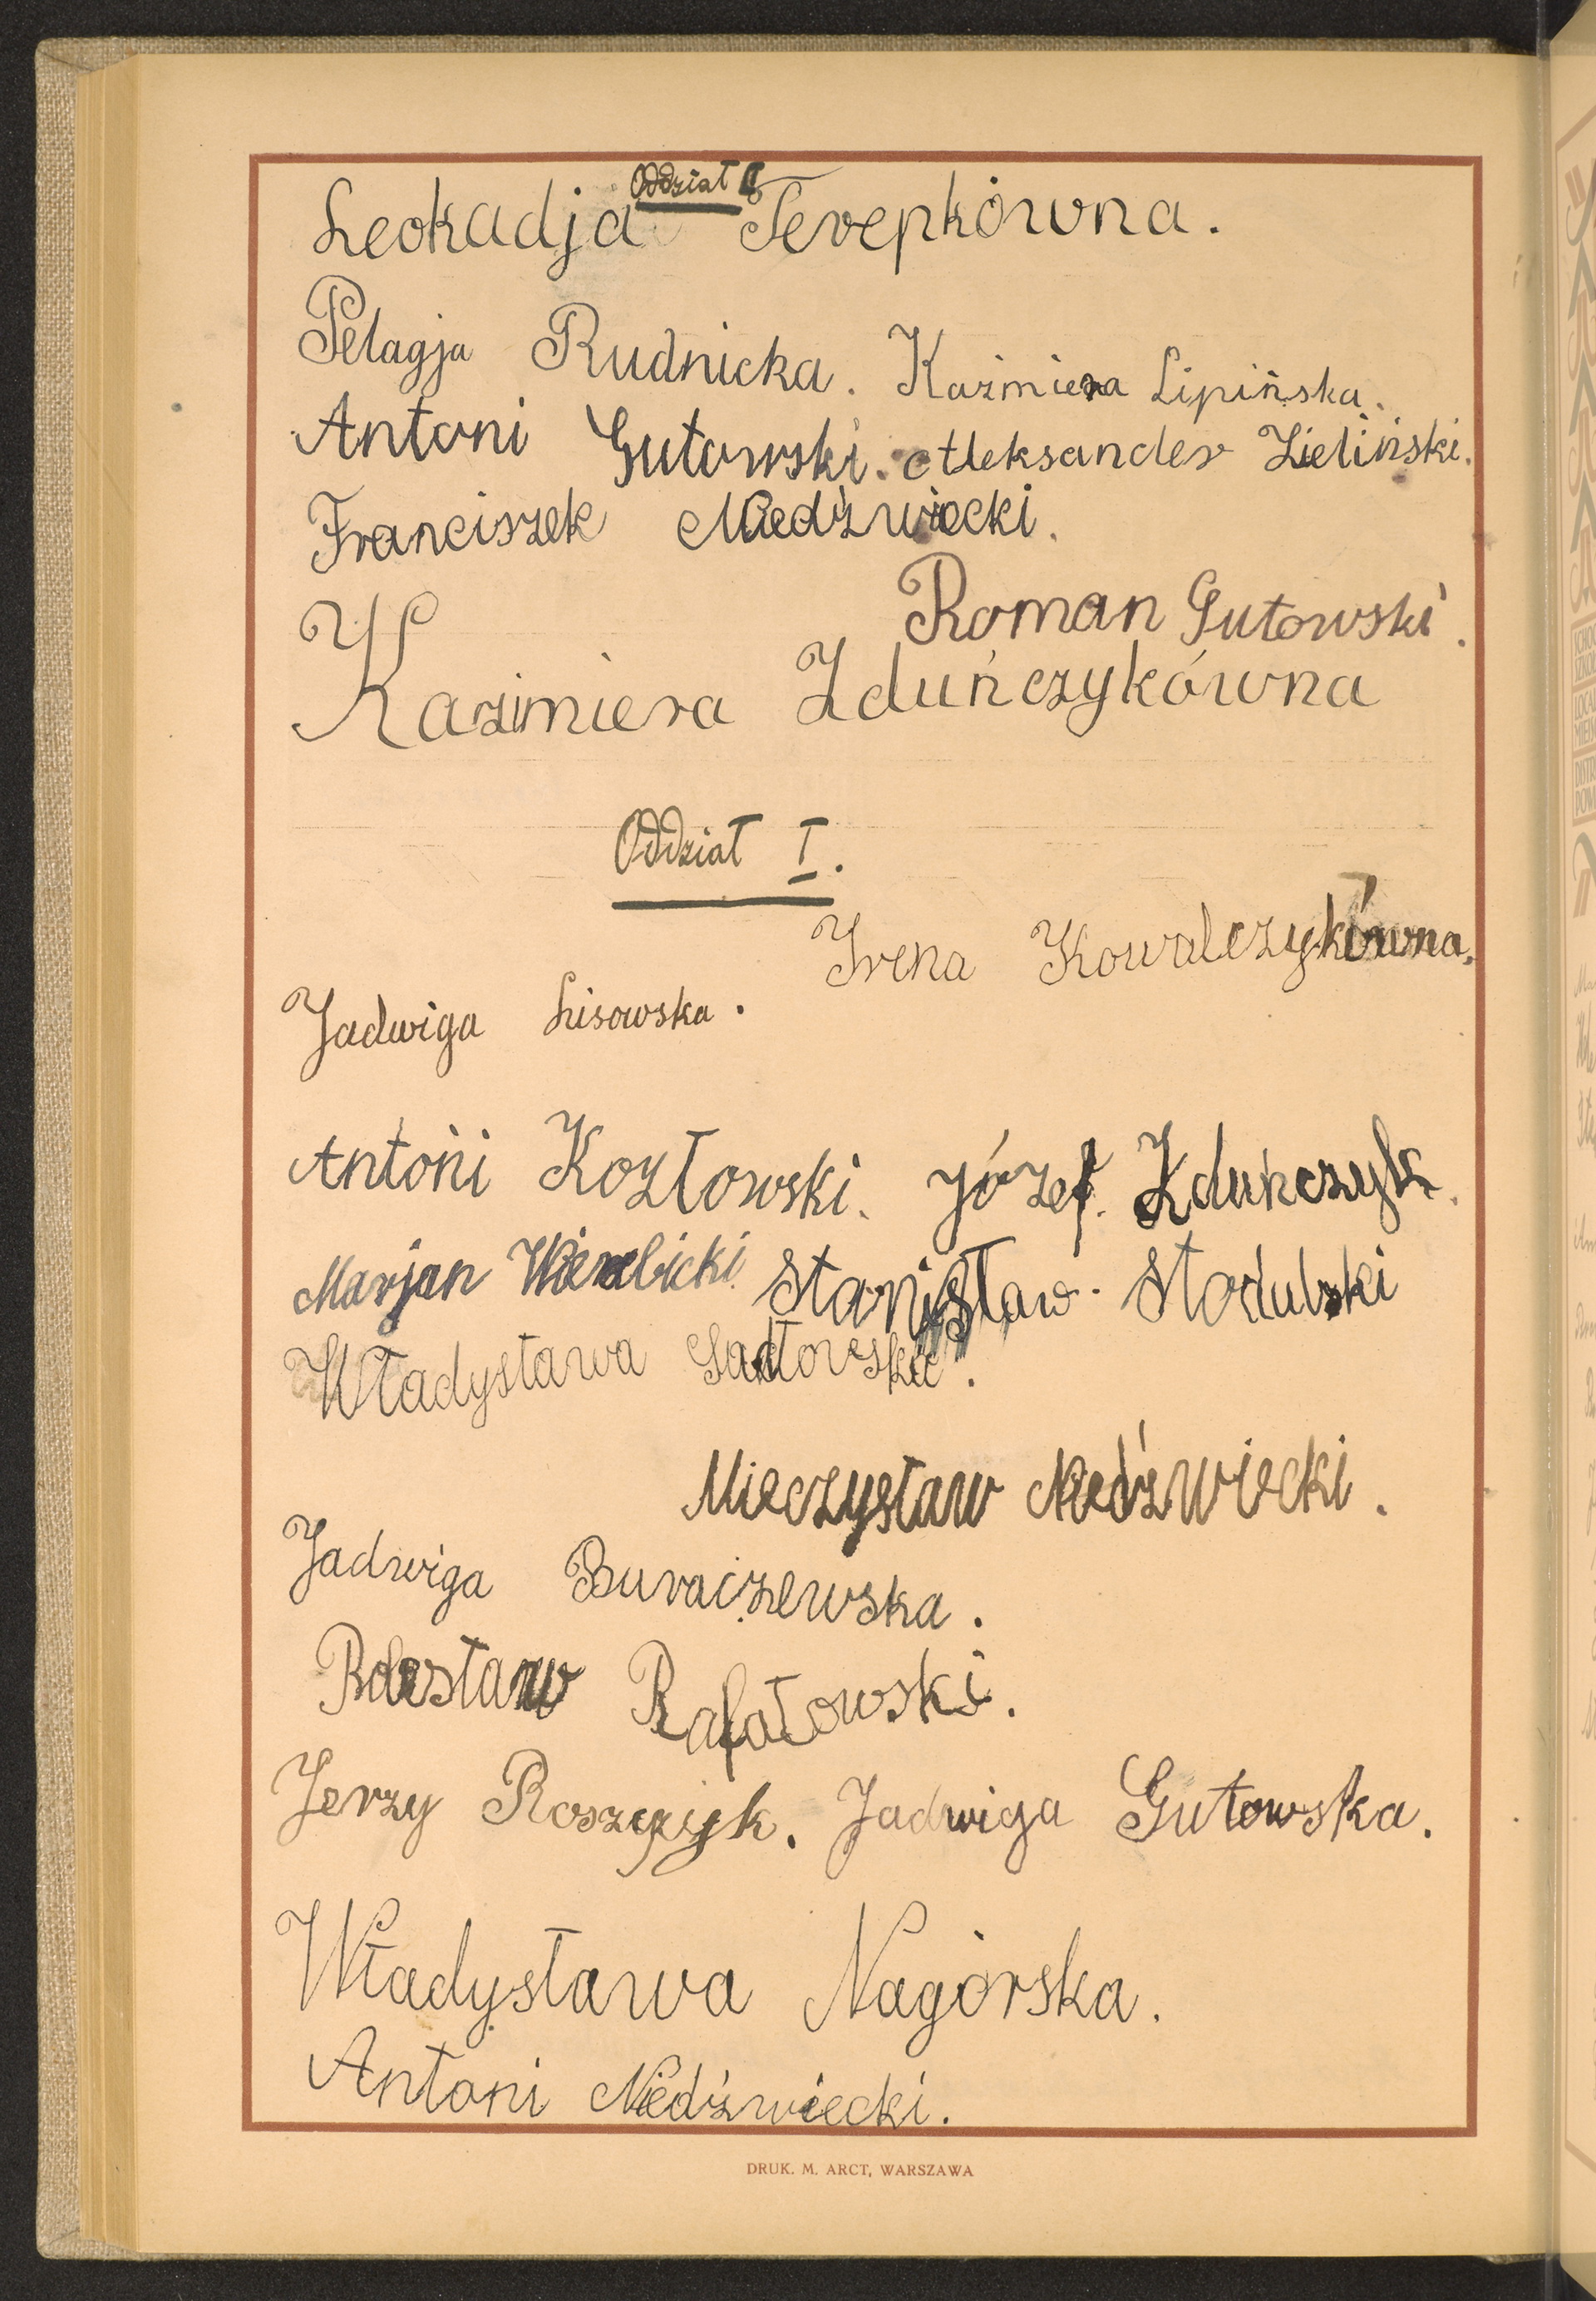 Oddział II
Leokadja Terepkówna.
Pelagja Rudnicka. Kazimiera Lipińska.
Antoni Gutowski. Aleksander Zieliński.
Franciszek Niedźwiecki.
Roman Gutowski.
Kazimiera Zduńczykówna
Oddział I.
Irena Kowalczykówna.
Jadwiga Lisowska.
Antoni Kozłowski. Józef. Zduńczyk.
Marjan Wierzbicki. Stanisław.
Władysława Sadłowska.
Mieczysław Niedźwiecki.
Jadwiga Buraczewska.
Bolesław Rafałowski.
Jerzy Roszczyk. Jadwiga Gutowska.
Władysława Nagórska.
Antoni Niedźwiecki.
DRUK. M. ARCT, WARSZAWA